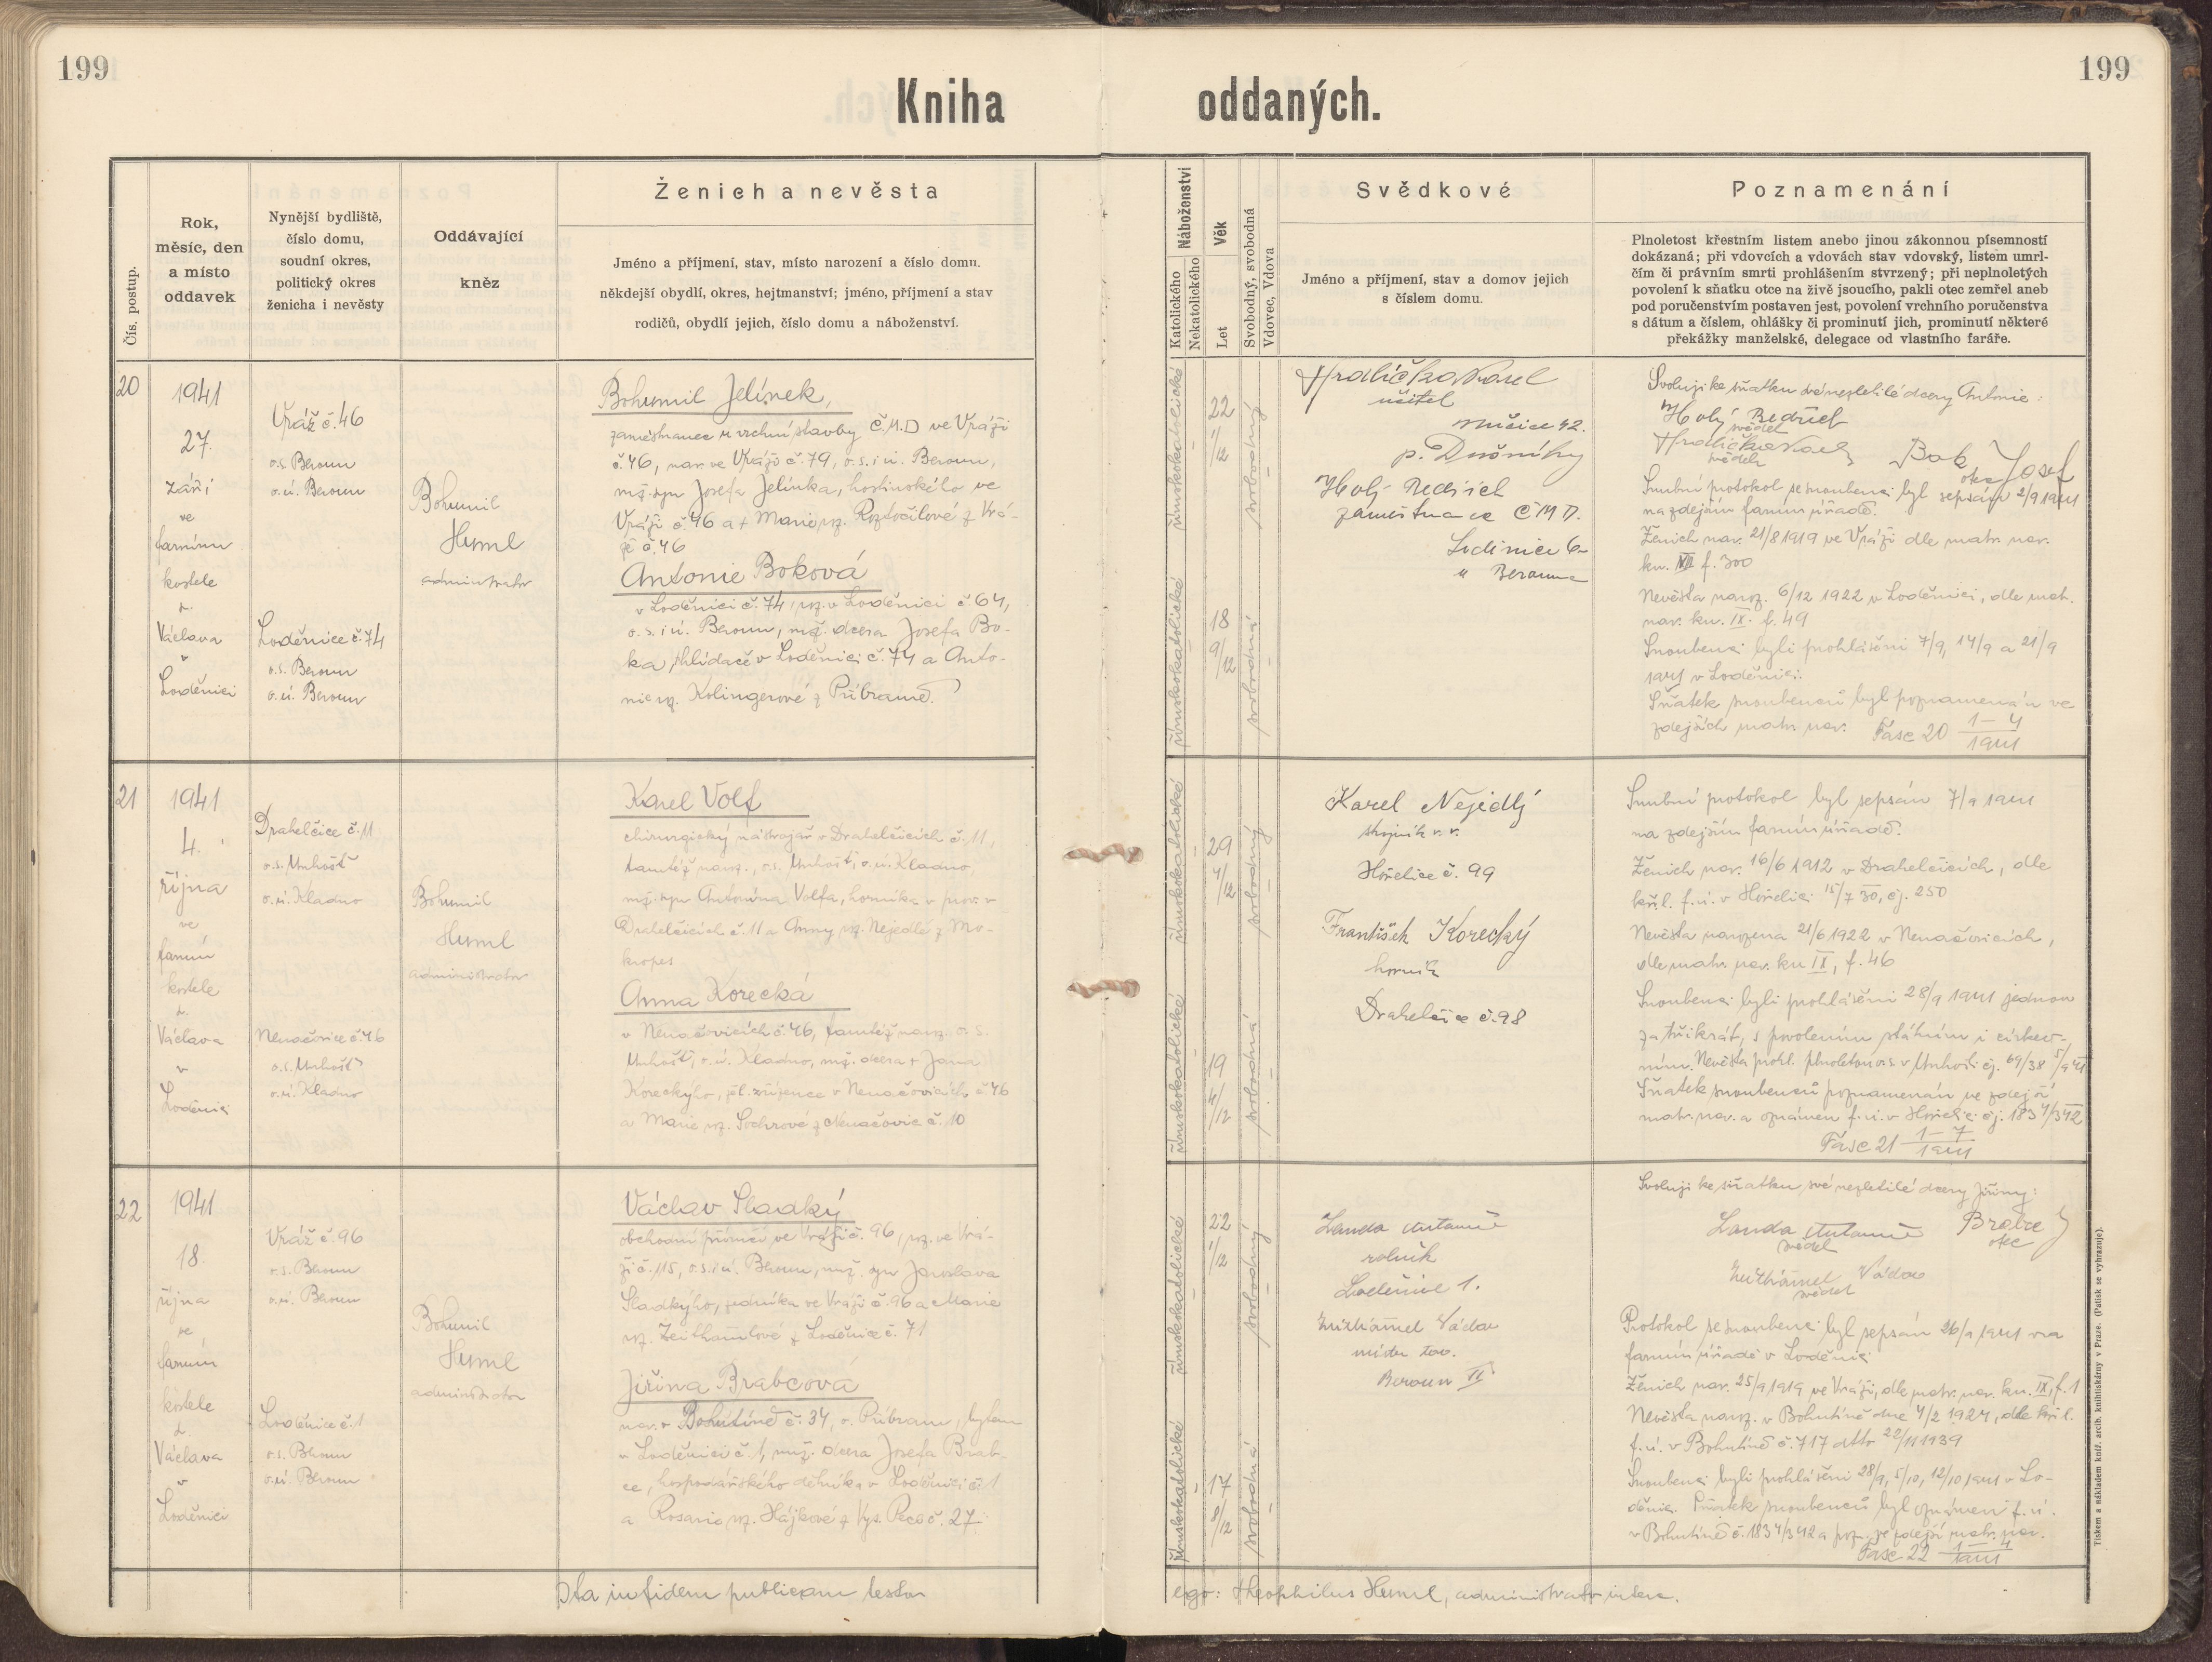 199
199
Kniha oddaných.
Čís. postup.
Rok,
měsíc, den
a místo
oddavek
Nynější bydliště,
číslo domu,
soudní okres,
politický okres
ženicha i nevěsty
Oddávající
kněz
Ženich a nevěsta
Jméno a příjmení, stav, místo narození a číslo domu.
někdejší obydlí, okres, hejtmanství; jméno, příjmení a stav
rodičů, obydlí jejich, číslo domu a náboženství.
Náboženství
Katolického
Nekatolického
Věk
Let
Svobodný, svobodná
Vdovec, Vdova
Svědkové
Jméno a příjmení, stav a domov jejich
s číslem domu.
Poznamenání
Plnoletost křestním listem anebo jinou zákonnou písemností
dokázaná; při vdovcích a vdovách stav vdovský, listem umrl-
čím či právním smrti prohlášením stvrzený; při neplnoletých
povolení k sňatku otce na živě jsoucího, pakli otec zemřel aneb
pod poručenstvím postaven jest, povolení vrchního poručenstva
s dátum a číslem, ohlášky či prominutí jich, prominutí některé
překážky manželské, delegace od vlastního faráře.
20
1941
27.
září
ve
farním
kostele
sv.
Václava
v
Loděnici
Vráž č. 46
o.s. Beroun
o.ú. Beroun
Loděnice č. 74
o.s. Beroun
o.ú. Beroun
Bohumil
Huml
administrátor
Bohumil Jelínek,
zaměstnanec u vrchní stavby Č.M.D ve Vráži
č. 46, nar. ve Vráži č. 79, o.s. i ú. Beroun,
mž. syn Josefa Jelínka, hostinského ve
Vráži č. 46 a + Marie roz. Roztočilové z Vrá-
že č. 46
Antonie Boková
v Loděnici č. 74, roz. v Loděnici č 64,
o.s. i ú. Beroun, mž. dcera Josefa Bo-
ka, hlídače v Loděnici č. 74 a Anto-
nie roz. Kolingerové z Příbramě.
římskokatolické
22
1/12
svobodný
římskokatolické
18
9/12
svobodná
Hrdlička Karel
učitel
Mučice 42.
p. Dušníky
Holý Bedřich
zaměstnanec ČMD.
Loděnice 6
u Berouna
Svoluji ke sňatku své nezletilé dcery Antonie:
Holý Bedřich
svědek
Hrdlička Karel
svědek
Bok Josef
otec
Snubní protokol se snoubenci byl sepsán 2/9 1941
na zdejším farním úřadě.
Ženich nar. 21/8 1919 ve Vráži dle matr. nar.
kn. VIII f. 300
Nevěsta naroz. 6/12 1922 v Loděnici, dle mat.
nar. kn. IX. f. 49
Snoubenci byli prohlášeni 7/9, 14/9 a 21/9
1941 v Loděnici.
Sňatek snoubenců byl poznamenán ve
zdejších matr. nar. Fasc 20 1–4/1941
21
1941
4.
října
ve
farním
kostele
sv.
Václava
v
Loděnici
Drahelčice č. 11
o.s. Unhošť
o.ú. Kladno
Nenačovice č. 46
o.s. Unhošť
o.ú. Kladno
Bohumil
Huml
administrátor
Karel Volf
chirurgický nástrojař v Drahelčicích č. 11,
tamtéž naroz., o.s. Unhošť, o.ú. Kladno,
mž. syn Antonína Volfa, horníka v pens. v
Drahelčicích č. 11 a Anny roz. Nejedlé z Mo-
kropes
Anna Korecká
v Nenačovicích č. 46, tamtéž naroz. o.s.
Unhošť, o.ú. Kladno, mž. dcera + Jana
Koreckýho, žel. zřízence v Nenačovicích č 46
a Marie roz. Sochrové z Nenačovic č. 10
římskokatolické
29
4/12
svobodný
římskokatolické
19
4/12
svobodná
Karel Nejedlý
strojník v. v.
Hořelice č. 99
František Korecký
horník
Drahelčice č. 98
Snubní protokol byl sepsán 7/9 1941
na zdejším farním úřadě.
Ženich nar. 16/6 1912 v Drahelčicích, dle
křl. f.ú. v Hořelici 15/7 30, čj. 250
Nevěsta narozena 21/6 1922 v Nenačovicích,
dle matr. nar. kn IX, f. 46
Snoubenci byli prohlášeni 28/9 1941 jednou
za třikrát, s povolením státním i církev-
ním. Nevěsta prohl. plnoletou o.s. v Unhošti čj. 69/38 5/9 41
Sňatek snoubenců poznamenán ve zdejší
matr. nar. a oznámen f.ú. v Hořelici čj. 1834/342
Fasc 21 1–7/1941
22
1941
18.
října
ve
farním
kostele
sv.
Václava
v
Loděnici
Vráž č. 96
o.s. Beroun
o.ú. Beroun
Loděnice č. 1
o.s. Beroun
o.ú. Beroun
Bohumil
Huml
administrátor
Václav Sladký
obchodní příručí ve Vráži č. 96, roz. ve Vrá-
ži č. 115, o.s. i ú. Beroun, mž. syn Jaroslava
Sladkýho, zedníka ve Vráži č. 96 a Marie
roz. Zeithamlové z Loděnice č. 71
Jiřina Brabcová
nar. v Bohutíně č. 34, o. Příbram, bytem
v Loděnici č. 1, mž. dcera Josefa Brab-
ce, hospodářského dělníka v Loděnici č. 1
a Rosarie roz. Hájkové z Vys. Pece č. 27.
římskokatolické
22
1/12
svobodný
římskokatolické
17
8/12
svobodná
Landa Antonín
rolník
Loděnice 1.
Zeithaml Václav
Beroun II
Svoluji ke sňatku své nezletilé dcery Jiřiny:
Landa Antonín
svědek
Brabec J
otec
Zeithaml Václav
svědek
Protokol se snoubenci byl sepsán 26/9 1941 na
farním úřadě v Loděnici
Ženich nar. 25/9 1919 ve Vráži, dle matr. nar. kn. IX, f. 1
Nevěsta naroz. v Bohutíně dne 4/2 1924, dle křl.
f.ú. v Bohutíně č. 717 dtto 22/11 1939
Snoubenci byli prohlášeni 28/9, 5/10, 12/10 1941 v Lo-
děnici. Sňatek snoubenců byl oznámen f.ú.
v Bohutíně č. 1834/342 a pozn. ve zdejší matr. nar.
Fasc 22 1–4/1941
Ita in fidem publicam testor
ego: Theophilus Huml, administrator interc.
Tiskem a nákladem kníž. arcib. knihtiskárny v Praze. (Patisk se vyhrazuje).